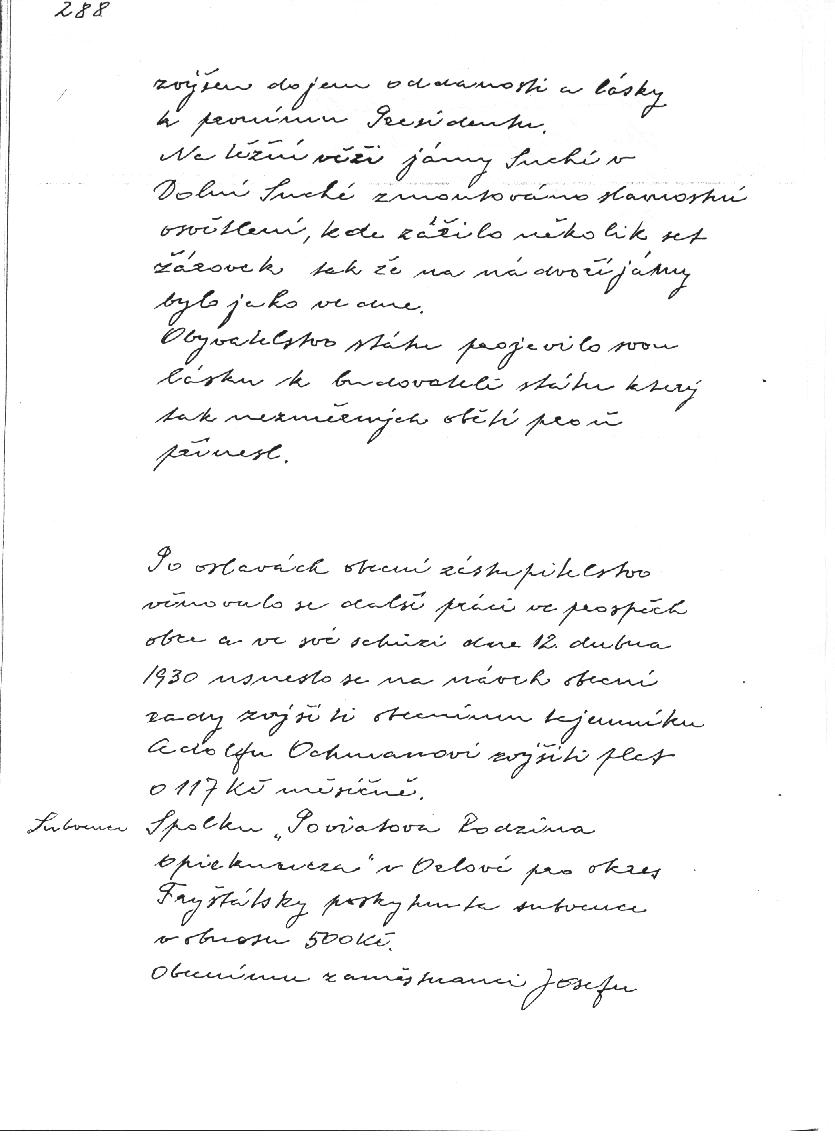 288
zvýšen dojem oddanosti a lásky
k prvnímu Presidentu.
Na těžní věži jámy Suché v
Dolní Suché zmontováno slavnostní
osvětlení, kde zářilo několik set
žárovek tak že na nádvoří jámy
bylo jako ve dne.
Obyvatelstvo státu projevilo svou
lásku k budovateli státu který
tak nezměrných obětí pro ň
přinesl.
Po oslavách obecní zástupitelstvo
věnovalo se další práci ve prospěch
obce a ve své schůzi dne 12. dubna
1930 usneslo se na návrh obecní
rady zvýšiti obecnímu tajemníku
Adolfu Ochmanovi zvýšiti plat
o 117 Kč měsíčně.
Subvence Spolku „Poviatova Rodzina
opiekuncza" v Orlové pro okres
Fryštátsky poskytnuta subvence
v obnosu 500 Kč.
Obecnímu zaměstnanci Josefu